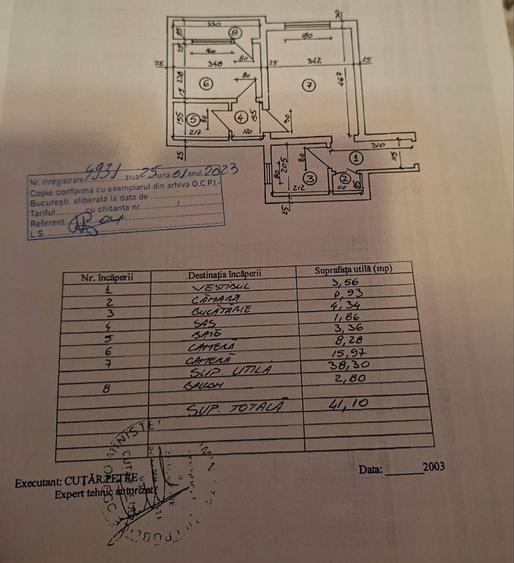 330
8
180
160
80
348
25
342
25
25
238
6
80
7
467
15
155
5
80
4
155
90
217
120
25
205
80
1
310
80
3
2
212
110
25
Nr. înregistrare 4931 ziua 25 luna 01 anul 2023
Copie conforma cu exemplarul din arhiva O.C.P.I.-
Bucureşti, eliberată la data de
Tariful cu chitanta nr. /
Referent
L.S.
Nr. încăperii Destinaţia încăperii Suprafaţa utilă (mp)
1 VESTIBUL 3,56
2 CĂMARĂ 0,93
3 BUCĂTĂRIE 4,34
4 SAS 1,86
5 BAIE 3,36
6 CAMERĂ 8,28
7 CAMERĂ 15,97
SUP. UTILĂ 38,30
8 BALCON 2,80
SUP. TOTALĂ 41,10
Executant: CUŢĂR PETRE
Expert tehnic autorizat
Data: _______2003